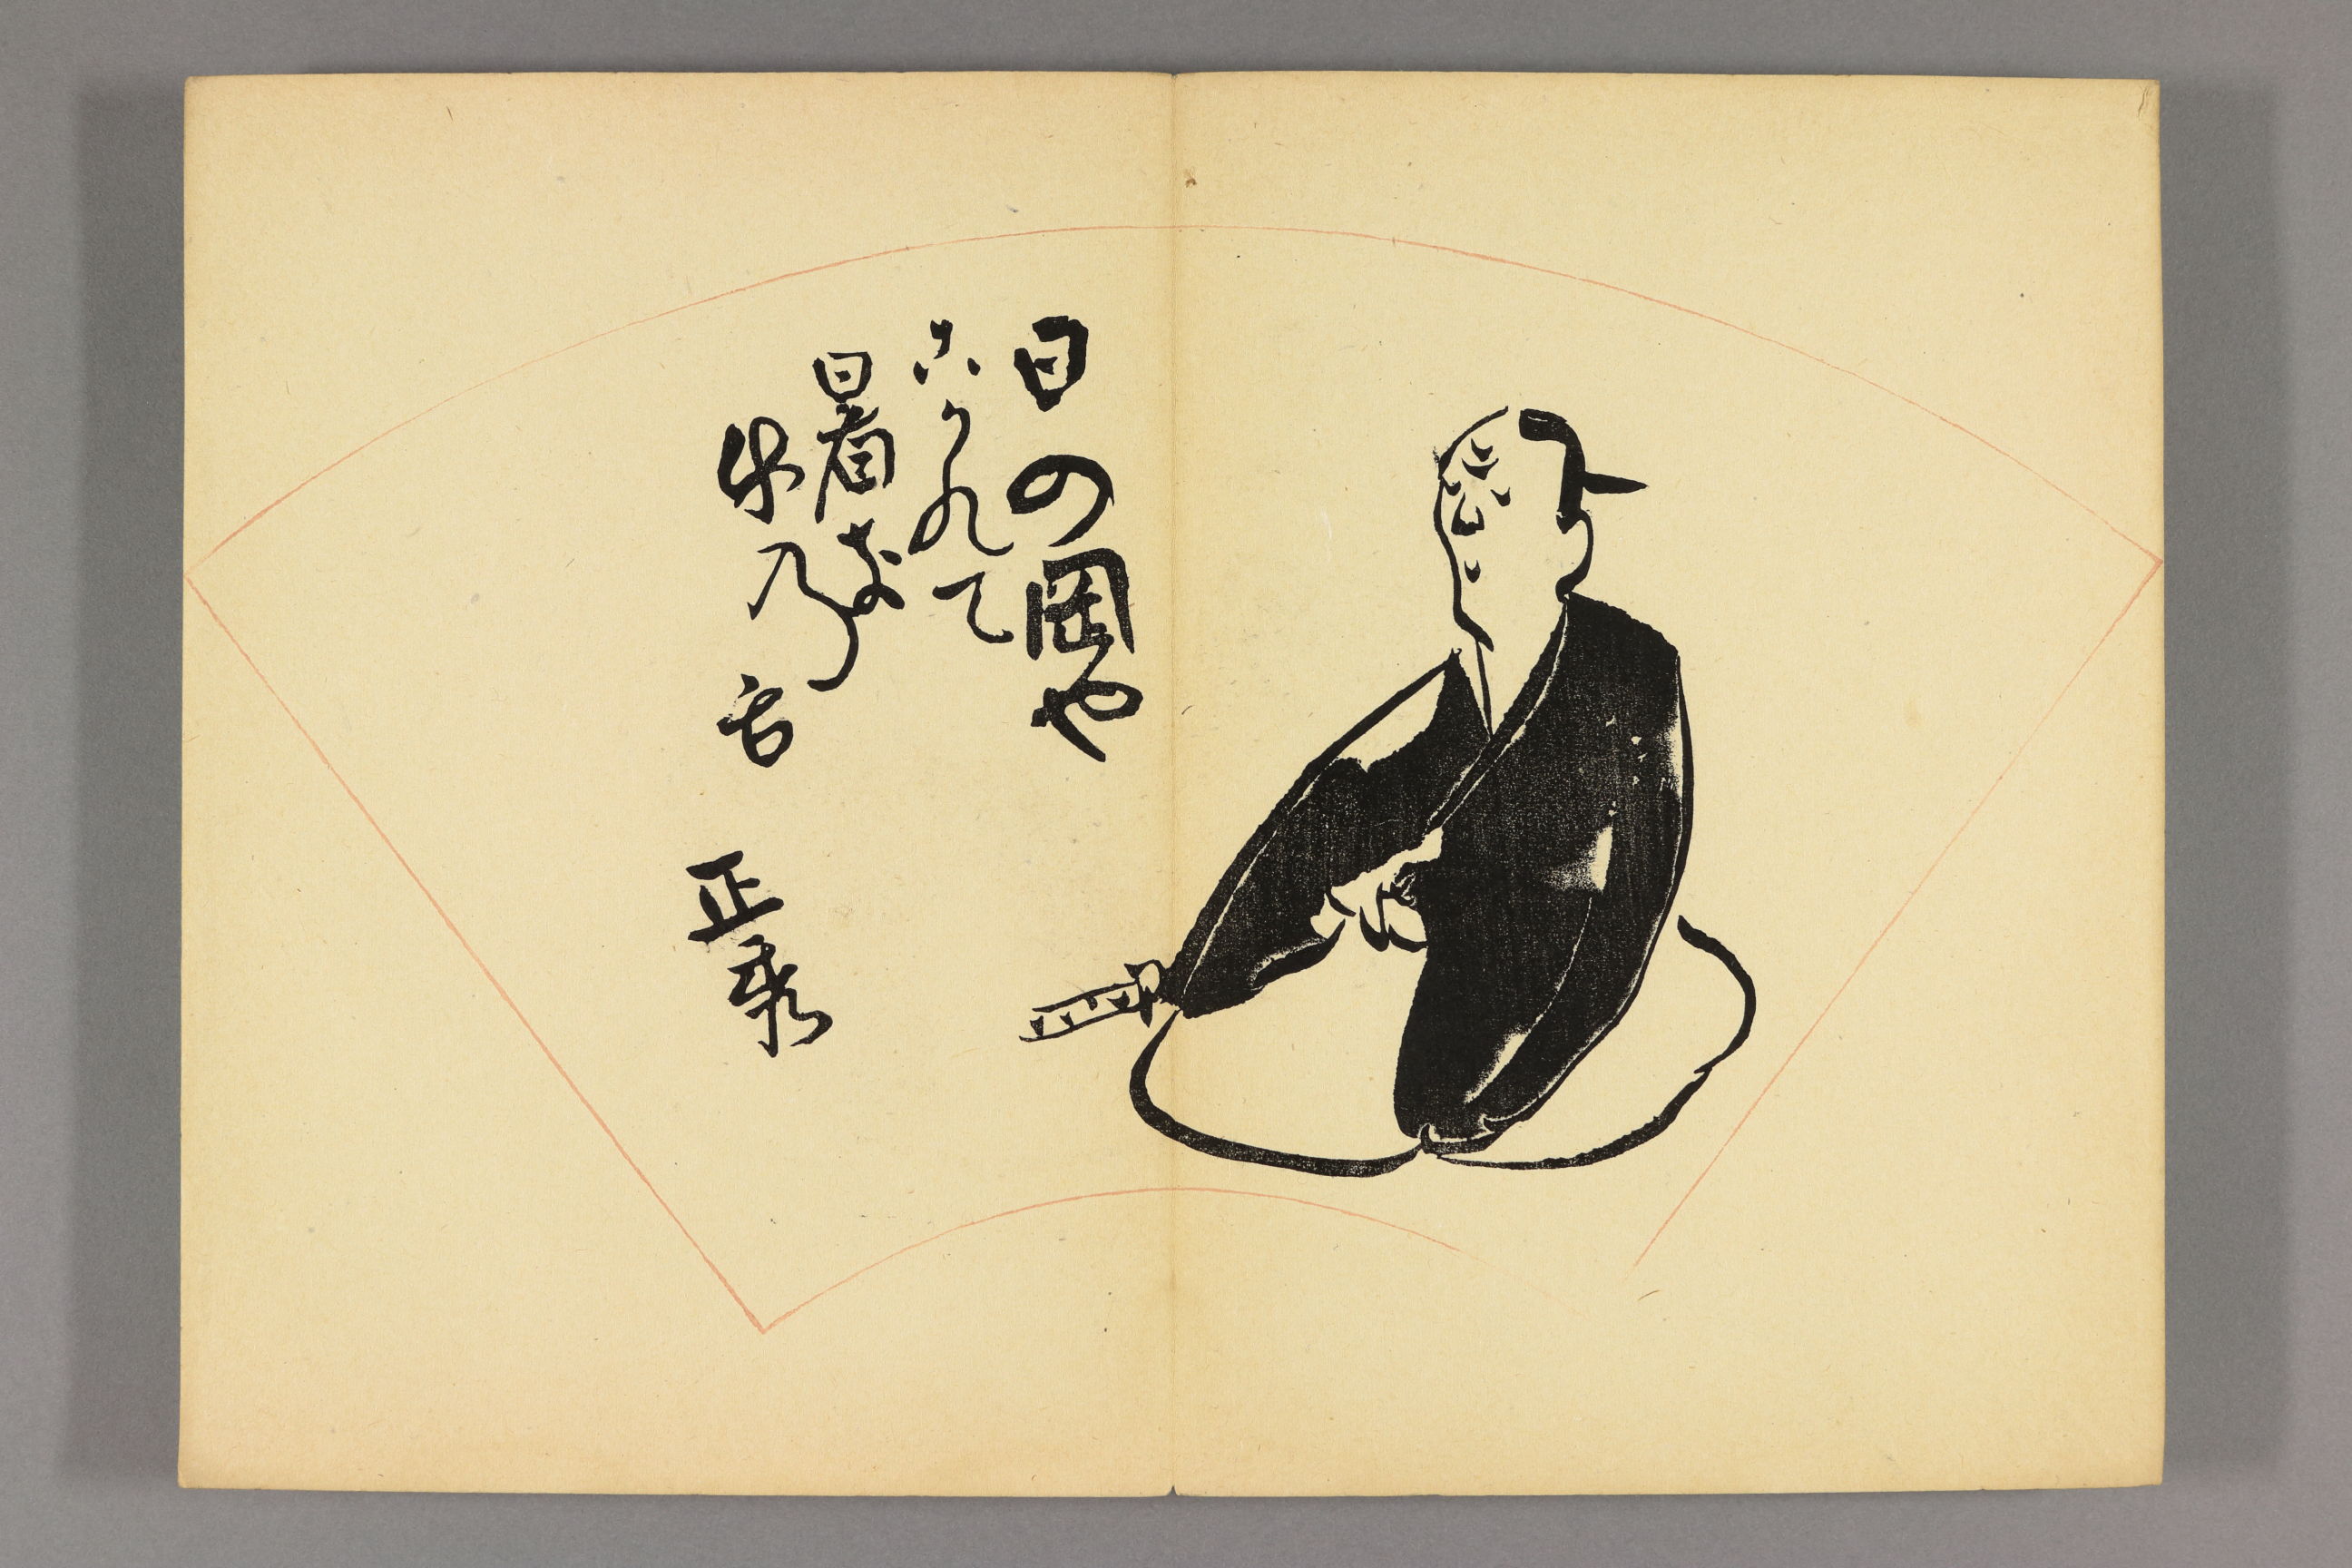 日の岡や
こかれて
暑き
牛乃舌
正秀